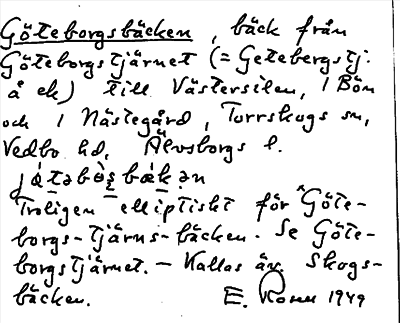 Göteborgsbäcken, bäck från
Göteborgstjärnet (= Getebergstj.
å ek) till Västersilen, 1 Bön
och 1 Nästegård, Torrskogs sn,
Vedbo hd, Älvsborgs l.
Troligen elliptiskt för ^Göte-
borgs-tjärns-bäcken. Se Göte-
borgstjärnet. – Kallas äv. Skogs-
bäcken. E. Rosell 1949